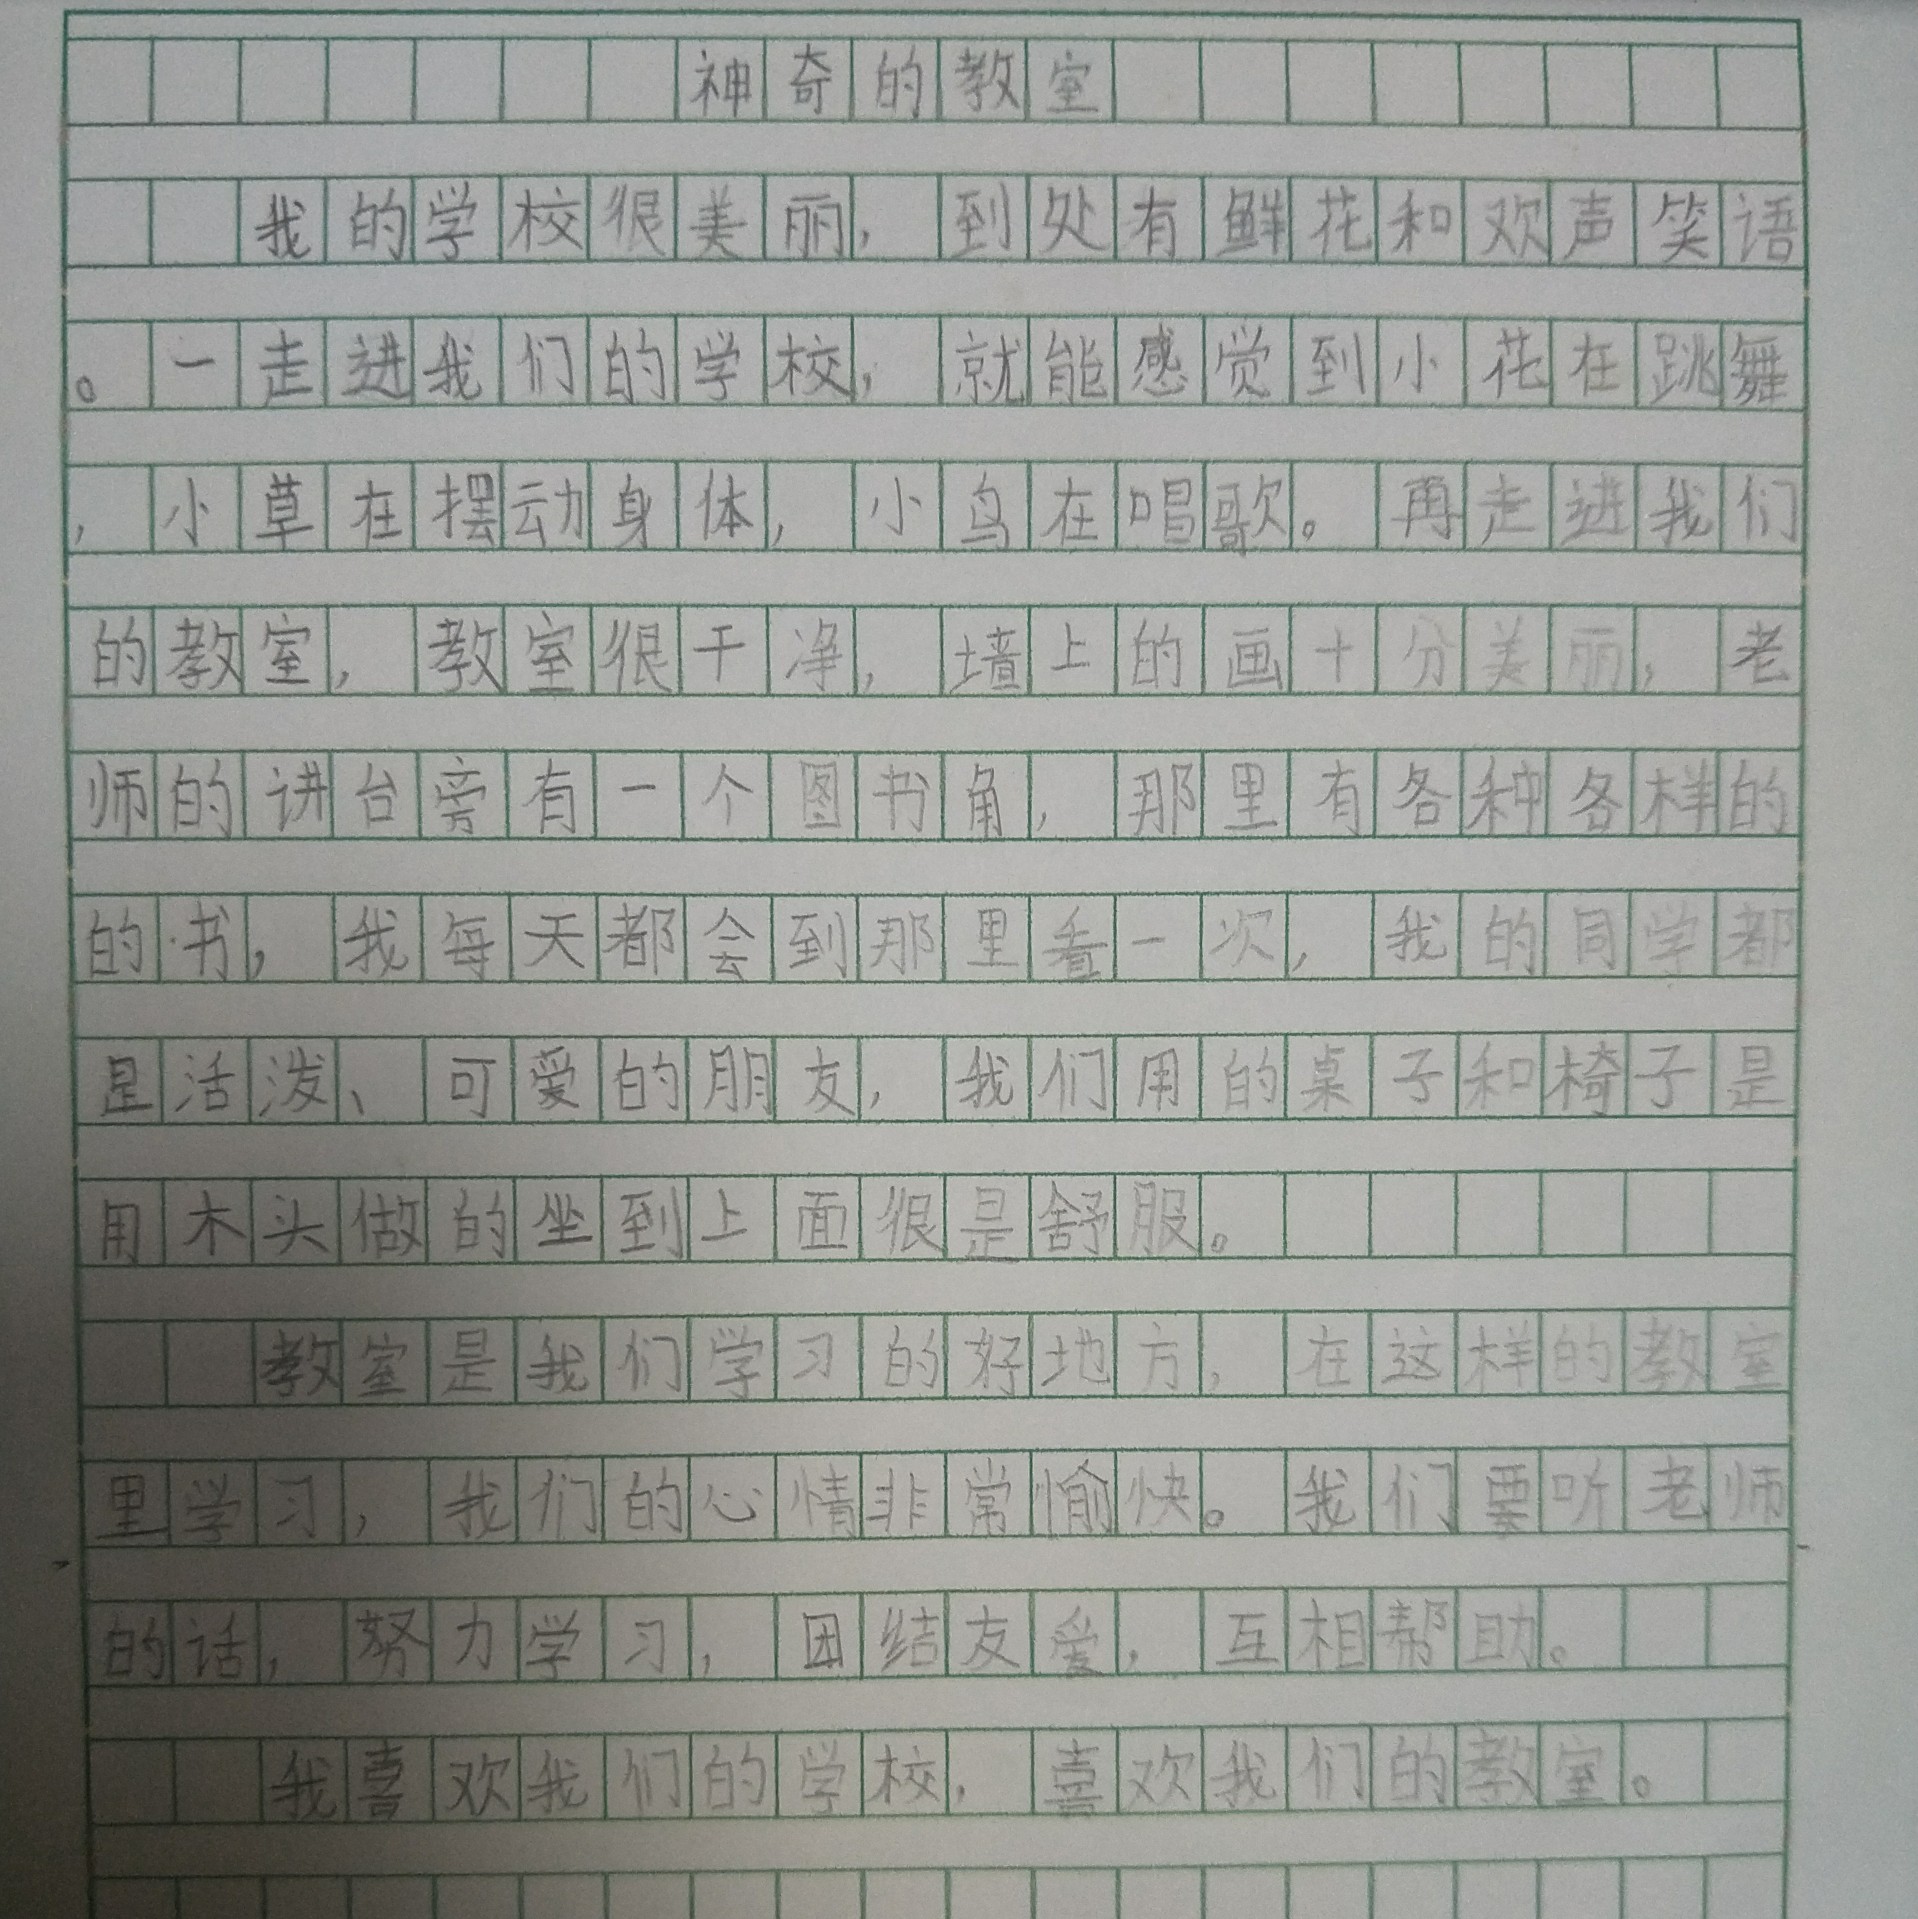 神奇的教室
我的学校很美丽，到处有鲜花和欢声笑语
。一走进我们的学校，就能感觉到小花在跳舞
，小草在摆动身体，小鸟在唱歌。再走进我们
的教室，教室很干净，墙上的画十分美丽，老
师的讲台旁有一个图书角，那里有各种各样的
的书，我每天都会到那里看一次，我的同学都
是活泼、可爱的朋友，我们用的桌子和椅子是
用木头做的坐到上面很是舒服。
教室是我们学习的好地方，在这样的教室
里学习，我们的心情非常愉快。我们要听老师
的话，努力学习，团结友爱，互相帮助。
我喜欢我们的学校，喜欢我们的教室。